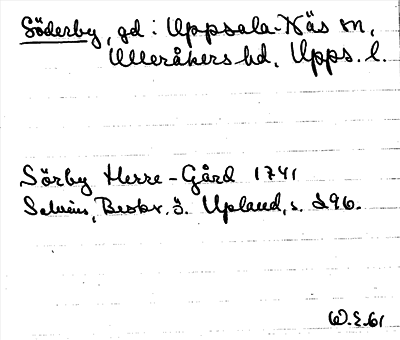 Söderby, gd i Uppsala-Näs sn,
Ulleråkers hd, Upps. l.
Sörby Herre-Gård 1741
Salvius, Beskr. ö. Upland, s. 296.
W.E. 61